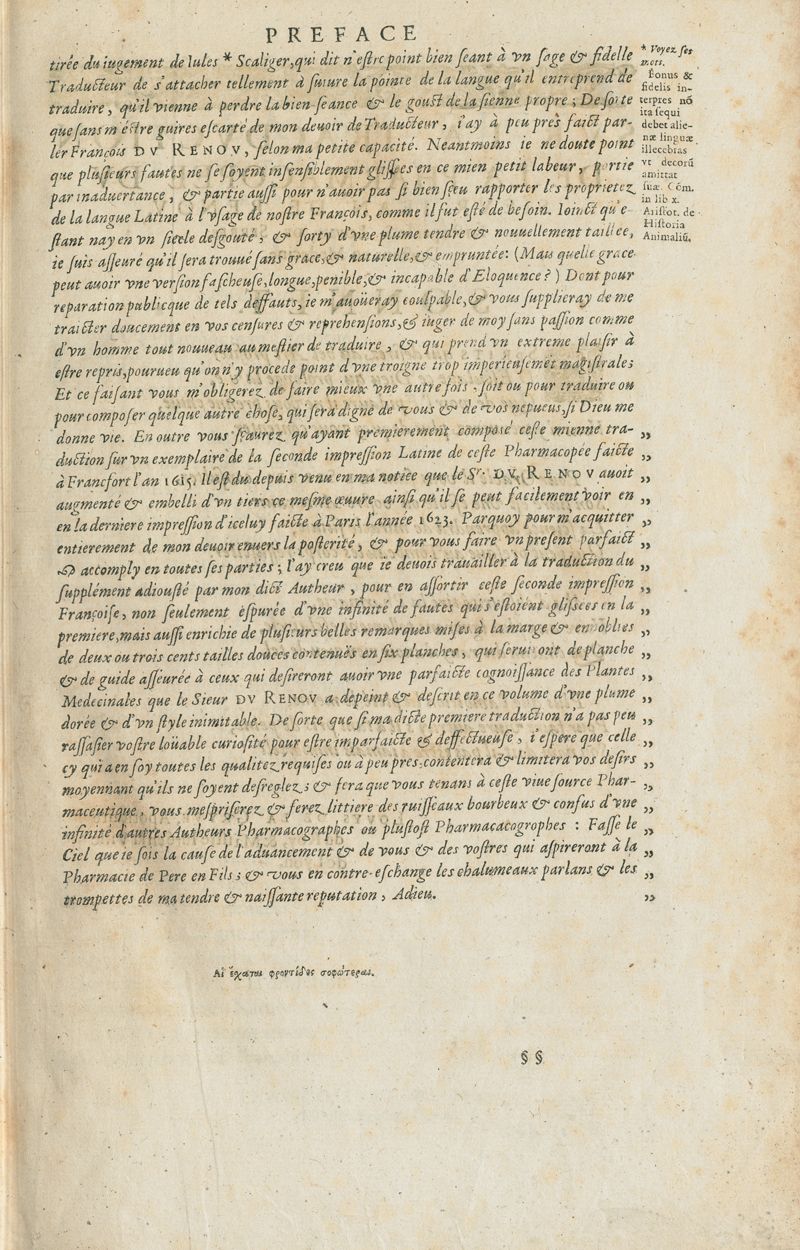 PREFACE
tirée du iugement de Iules * Scaliger, qui dit n'estre point bien seant à vn sage & fidelle
Traducteur de s'attacher tellement à suiure la pointe de la langue qu'il entreprend de
traduire, qu'il vienne à perdre la bien-seance & le goust de la sienne propre; De sorte
que sans m'éstre guires escarté de mon deuoir de Traducteur, i'ay à peu prés faict par-
ler François DV RENOV, selon ma petite capacité. Neantmoins ie ne doute point
que plusieurs fautes ne se soyent insensiblement glissées en ce mien petit labeur, partie
par inaduertance, & partie aussi pour n'auoir pas si bien sçeu rapporter les proprietez
de la langue Latine à l'vsage de nostre François, comme il fut esté de besoin. Ioinct qu'e-
stant nay en vn siecle desgouté, & sorty d'vne plume tendre & nouuellement taillée,
ie suis asseuré qu'il sera trouué sans grace, & naturelle, & empruntée: (Mais quelle grace
peut auoir vne version fascheuse, longue, penible, & incapable d'Eloquence?) Dont pour
reparation publicque de tels deffauts, ie m'auoüeray coulpable, & vous supplieray de me
traicter doucement en vos censures & reprehensions, & iuger de moy sans passion comme
d'vn homme tout nouueau au mestier de traduire, & qui prend vn extreme plaisir à
estre repris, pourueu qu'on n'y procede point d'vne troigne trop imperieusemēt magistrale;
Et ce faisant vous m'obligerez de faire mieux vne autre fois, soit ou pour traduire ou
pour composer quelque autre chose, qui sera digne de vous & de vos nepueus, si Dieu me
donne vie. En outre vous sçaurez qu'ayant premierement composé ceste mienne tra- ,,
duction sur vn exemplaire de la seconde impression Latine de ceste Pharmacopée faicte ,,
à Francfort l'an 1615. Il est du depuis venu en ma notice que le Sr. DV RENOV auoit ,,
augmenté & embelli d'vn tiers ce mesme œuure ainsi qu'il se peut facilement voir en ,,
en la derniere impression d'iceluy faicte à Paris l'année 1623. Parquoy pour m'acquitter ,,
entierement de mon deuoir enuers la posterité, & pour vous faire vn present parfaict ,,
& accomply en toutes ses parties; I'ay creu que ie deuois trauailler à la traduction du ,,
supplément adiousté par mon dict Autheur, pour en assortir ceste seconde impression ,,
Françoise, non seulement espurée d'vne infinité de fautes qui s'estoient glissées en la ,,
premiere, mais aussi enrichie de plusieurs belles remarques mises à la marge & en oblies ,,
de deux ou trois cents tailles douces contenuës en six planches, qui seruiront de planche ,,
& de guide asseurée à ceux qui desireront auoir vne parfaicte cognoissance des Plantes ,,
Medecinales que le Sieur DV RENOV a depeint & descrit en ce volume d'vne plume ,,
dorée & d'vn style inimitable. De sorte que si ma dicte premiere traduction n'a pas peu ,,
rassasier vostre loüable curiosité pour estre imparfaicte & deffectueuse, i'espere que celle ,,
cy qui a en soy toutes les qualitez requises ou à peu pres, contentera & limitera vos desirs ,,
moyennant qu'ils ne soyent desreglez; & fera que vous tenans à ceste viue source Phar- ,,
maceutique, vous mespriserez & ferez littiere des ruisseaux bourbeux & confus d'vne ,,
infinité d'autres Autheurs Pharmacographes ou plustost Pharmacacographes: Fasse le ,,
Ciel que ie sois la cause de l'aduancement & de vous & des vostres qui aspireront à la ,,
Pharmacie de Pere en Fils; & vous en contre-eschange les chalumeaux parlans & les ,,
trompettes de ma tendre & naissante reputation, Adieu. ,,
* Voyez ses
mots.
Bonus &
fidelis in-
terpres nō
ita sequi
debet alie-
næ linguæ
illecebras
vt decorū
amittat
suæ. Cōm.
in lib x.
Aristot. de
Historia
Animaliū.
Αἱ ἔχαται φροντίδες σοφώτεραι.
§ §